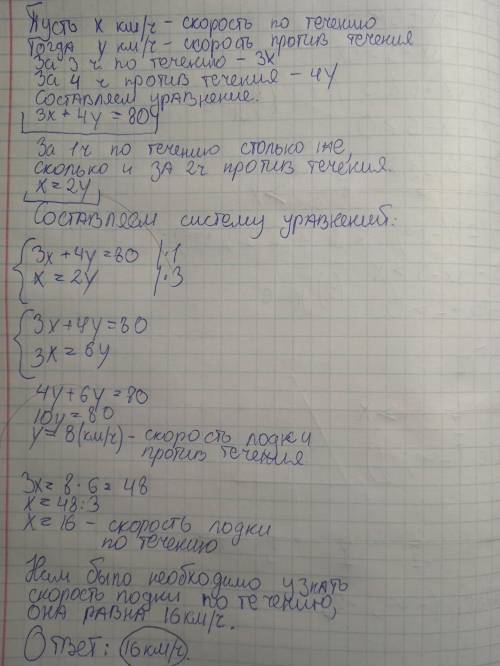 Пусть х км/ч - скорость по течению
Тогда у км/ч - скорость против течения
За 3 ч по течению - 3х
За 4 ч против течения - 4у
Составляем уравнение.
3х + 4у = 80
За 1ч по течению столько же,
сколько и за 2ч против течения.
х = 2у
Составляем систему уравнений:
3х + 4у = 80 | · 1
х = 2у | · 3
3х + 4у = 80
3х = 6у
4у + 6у = 80
10у = 80
у = 8 (км/ч) - скорость лодки
против течения
3х = 8 · 6 = 48
х = 48 : 3
х = 16 - скорость лодки
по течению
Нам было необходимо узнать
скорость лодки по течению,
она равна 16 км/ч.
Ответ: 16 км/ч.